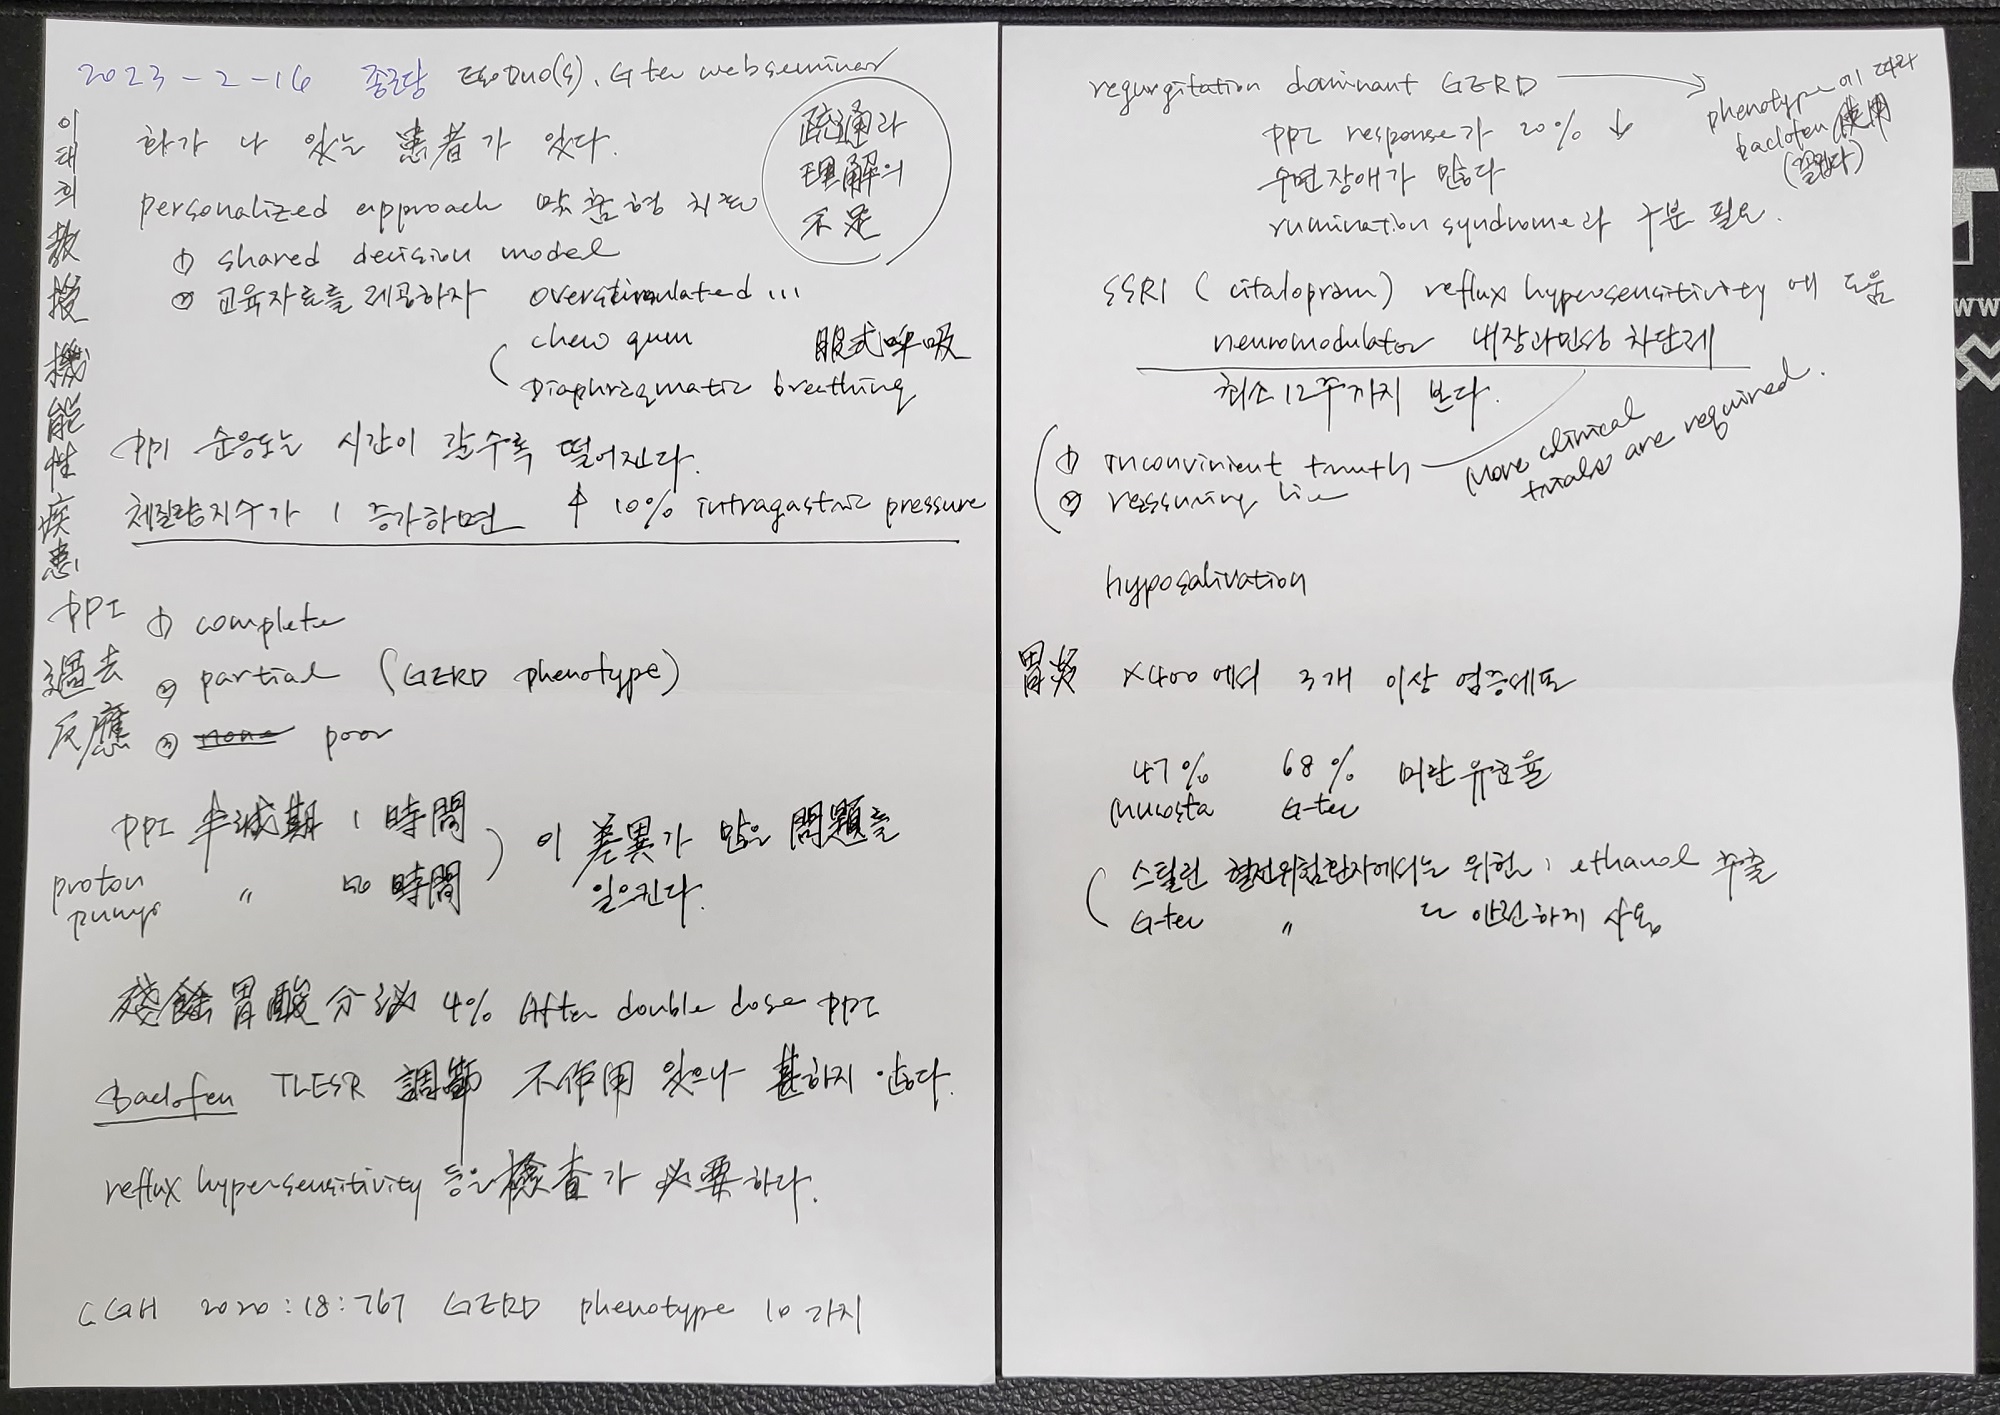 2023-2-16 종근당 EsoDuo(s), G tec webseminar
이태희 敎授 機能性疾患
화가 나 있는 患者가 있다.
疏通과
理解의
不足
personalized approach 맞춤형 치료
① shared decision model
② 교육자료를 제공하자 overstimulated ...
chew gum
腹式呼吸
Diaphragmatic breathing
PPI 순응도는 시간이 갈수록 떨어진다.
체질량지수가 1 증가하면 ↑ 10% intragastric pressure
PPI
過去
反應
① complete
② partial (GERD phenotype)
③ poor
PPI 半減期 1時間
proton pump 〃 50時間
이 差異가 많은 問題를
일으킨다.
殘餘胃酸分泌 4% After double dose PPI
Baclofen TLESR 調節 不作用 있으나 甚하지 않다.
reflux hypersensitivity 등은 檢査가 必要하다.
CGH 2020:18:767 GERD phenotype 10가지
regurgitation dominant GERD
phenotype에 따라
baclofen 使用
PPI response가 20% ↓
수면장애가 많다
rumination syndrome과 구분 필요.
SSRI (citalopram) reflux hypersensitivity에 도움
neuromodulator 내장과민성 차단제
최소 12주까지 본다.
① inconvinient truth
② ressuring lie
more clinical
trials are required.
hyposalivation
胃炎 x400에서 3개 이상 염증세포
47% 68% 미란 유효율
mucosta G-tec
스틸렌 혈전위험환자에서는 위험; ethanol 추출
G-tec 〃 는 안전하게 사용